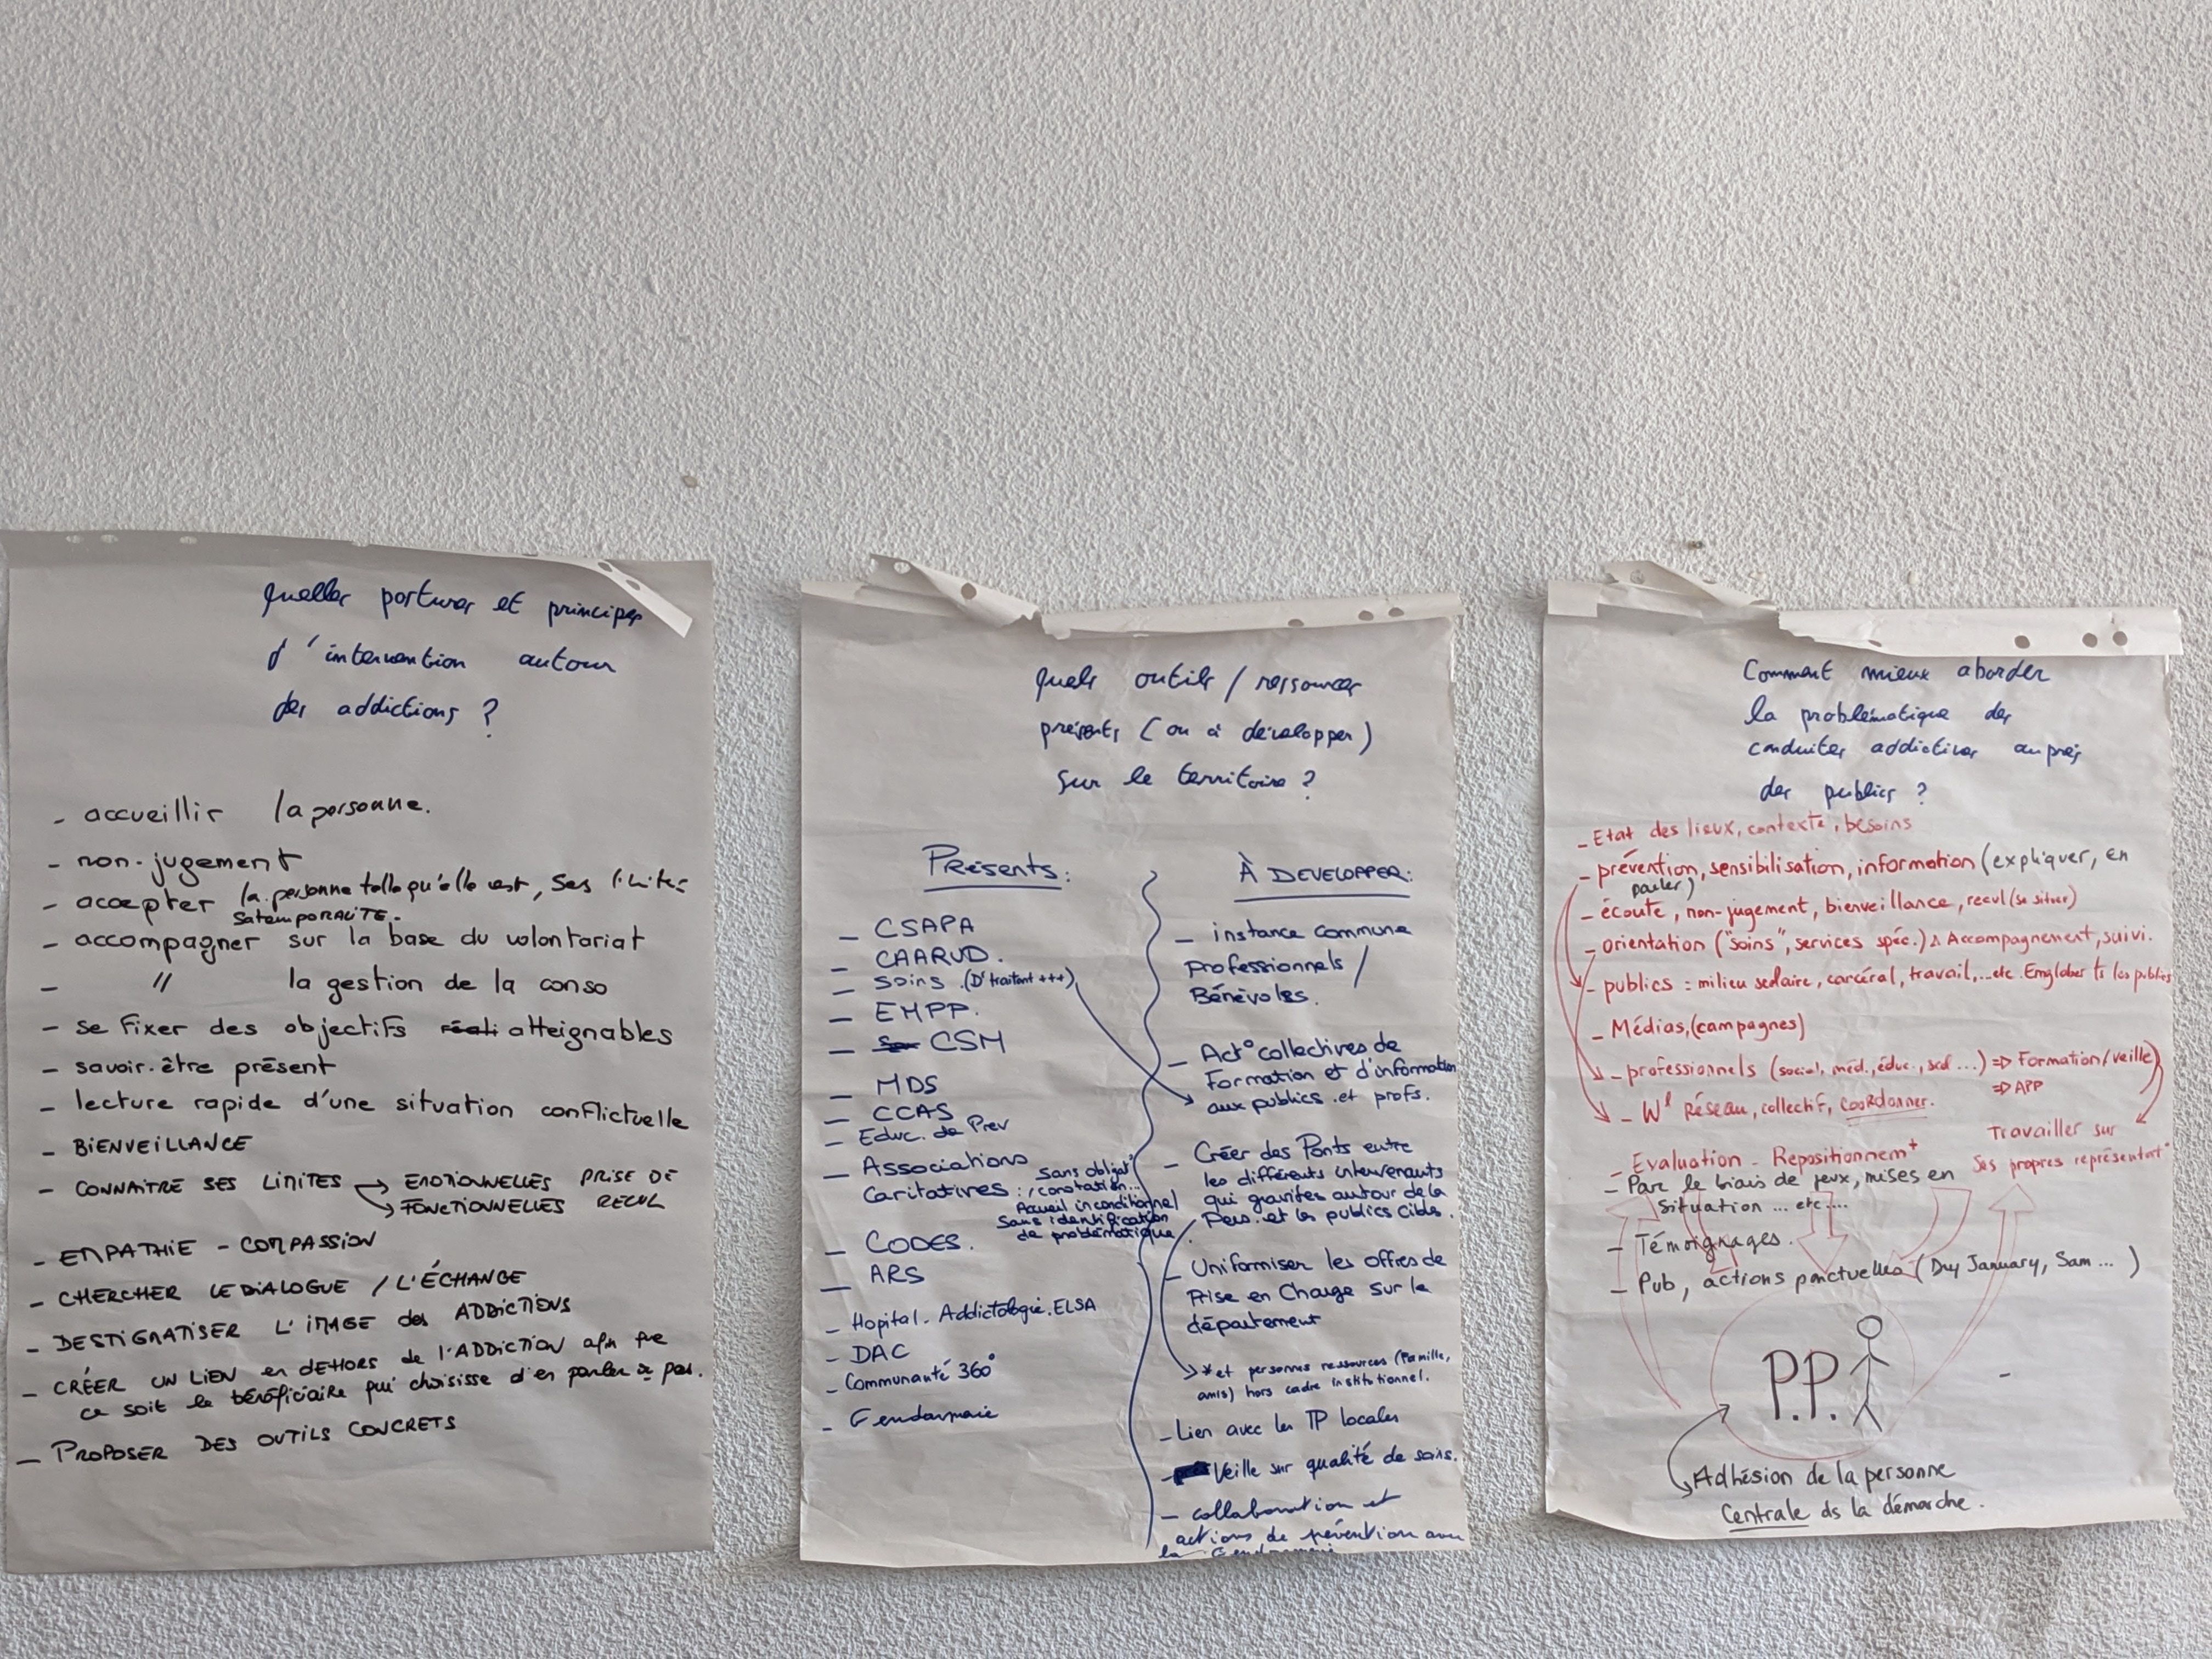 Quelles postures et principes
d'intervention autour
des addictions ?
- accueillir la personne.
- non-jugement
- accepter la personne telle qu'elle est, ses limites
sa temporalité.
- accompagner sur la base du volontariat
- " la gestion de la conso
- se fixer des objectifs atteignables
- savoir-être présent
- lecture rapide d'une situation conflictuelle
- BIENVEILLANCE
- CONNAITRE SES LIMITES → EMOTIONNELLES PRISE DE
→ FONCTIONNELLES RECUL
- EMPATHIE - COMPASSION
- CHERCHER LE DIALOGUE / L'ÉCHANGE
- DESTIGMATISER L'IMAGE des ADDICTIONS
- CRÉER UN LIEN en dEHORS de l'ADDICTION afin que
ce soit le bénéficiaire qui choisisse d'en parler ou pas.
- PROPOSER DES OUTILS CONCRETS
Quels outils / ressources
présents (ou à développer)
sur le territoire ?
Présents :
- CSAPA
- CAARUD.
- Soins (Dr traitant +++)
- EMPP.
- CSM
- MDS
- CCAS
- Educ. de Prev
- Associations
Caritatives :
Sans obligat°
/ constatation...
Accueil inconditionnel
Sans identification
de problématique.
- CODES.
- ARS
- Hopital - Addictologie. ELSA
- DAC
- Communauté 360°
- Gendarmerie
À DEVELOPPER :
- instance commune
Professionnels /
Bénévoles.
- Act° collectives de
Formation et d'information
aux publics et profs.
- Créer des Ponts entre
les différents intervenants
qui gravites autour de la
Pers. et les publics cibls.
- Uniformiser les offres de
Prise en Charge sur le
département
* et personnes ressources (Famille,
amis) hors cadre institutionnel.
- Lien avec les TP locales
- Veille sur qualité de soins.
- collaboration et
actions de prévention avec
la Gendarmerie
Comment mieux aborder
la problématique des
conduites addictives auprès
des publics ?
- Etat des lieux, contexte, besoins
- prévention, sensibilisation, information (expliquer, en
parler)
- écoute, non-jugement, bienveillance, recul (se situer)
- orientation ("soins", services spéc.) Accompagnement, suivi.
- publics : milieu scolaire, carcéral, travail,...etc. Emglober ts les publics
- Médias, (campagnes)
- professionnels (social, méd., éduc., scol ...) => Formation / veille
=> APP
- Wl Réseau, collectif, coordonner.
Travailler sur
ses propres représentat°
- Evaluation - Repositionnemt
- Par le biais de jeux, mises en
situation ... etc....
- Témoignages.
- Pub, actions ponctuelles (Dry January, Sam ... )
P.P.
Adhésion de la personne
Centrale ds la démarche.